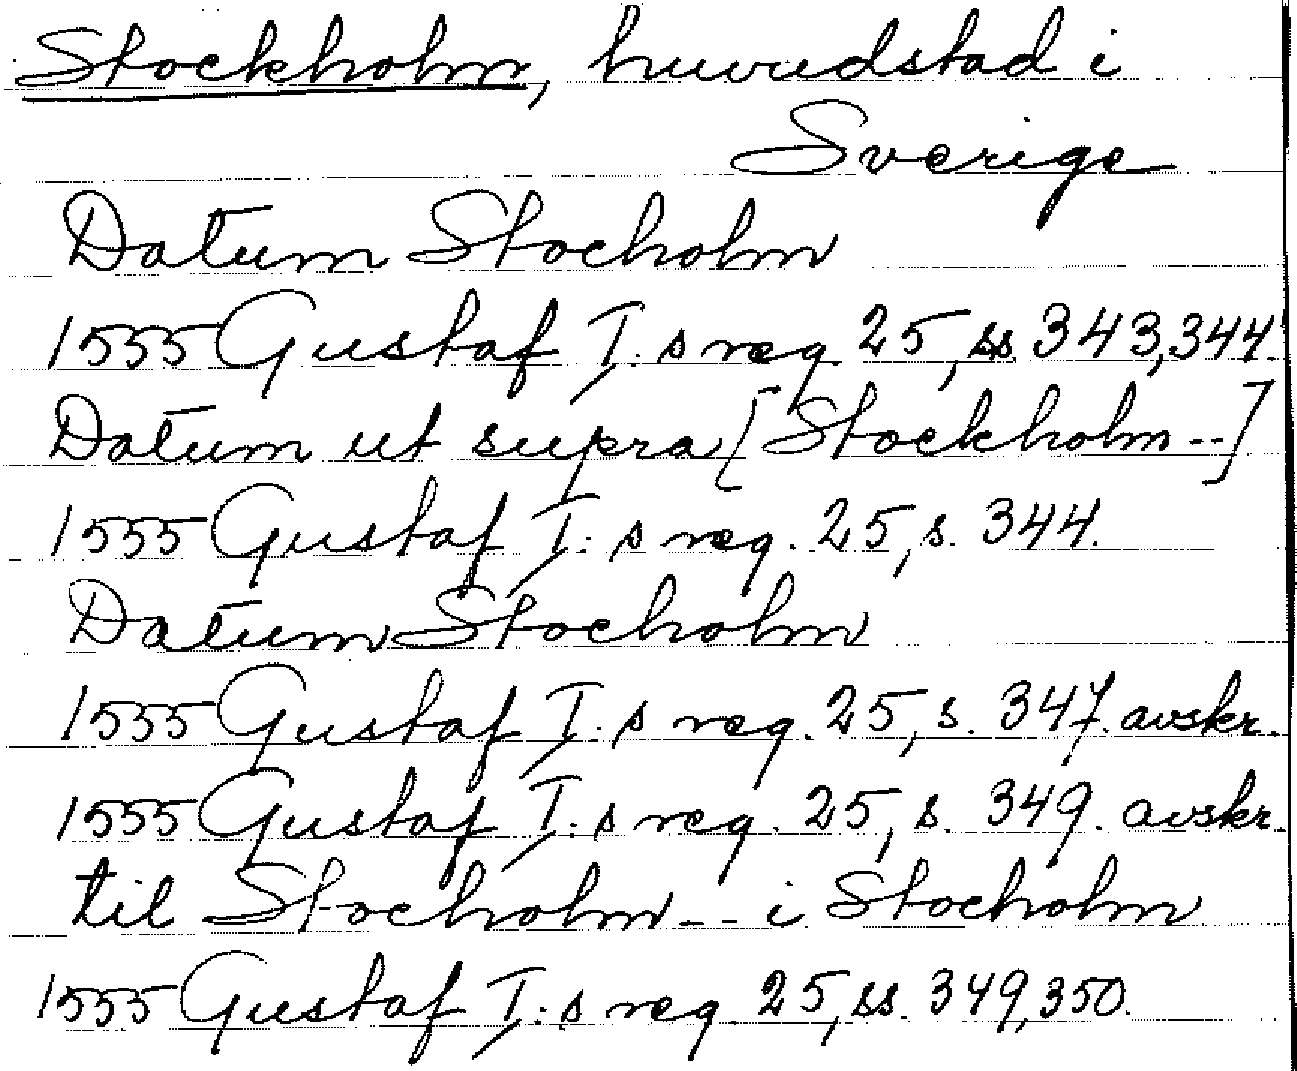 Stockholm, huvudstad i
Sverige
Datum Stocholm
1555 Gustaf I:s reg 25, ss 343, 344.
Datum ut supra [Stockholm --]
1555 Gustaf I:s reg. 25, s. 344.
Datum Stocholm
1555 Gustaf I:s reg. 25, s. 347. avskr.
1555 Gustaf I:s reg. 25, s. 349. avskr.
til Stocholm -- i Stocholm
1555 Gustaf I:s reg 25, ss. 349, 350.